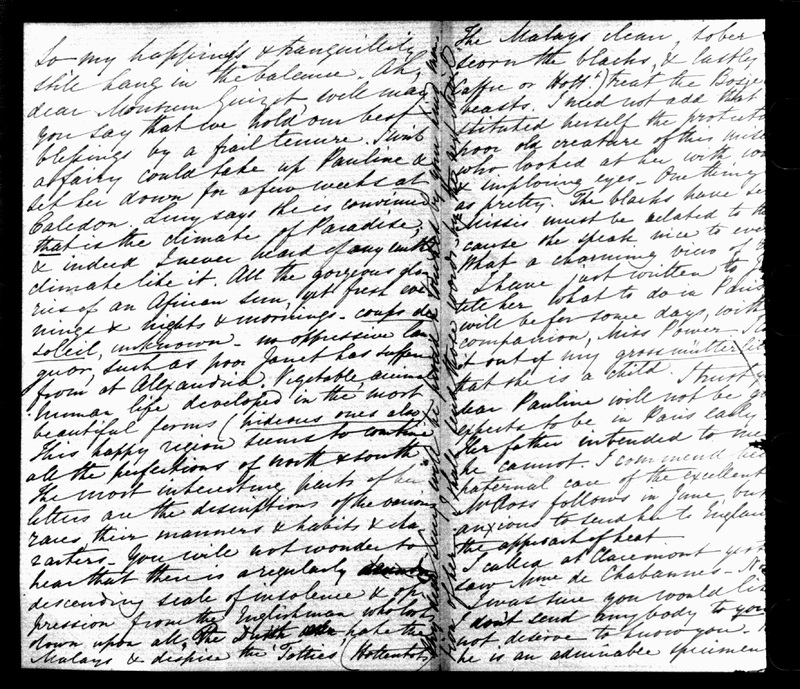 So my happiness & tranquillity
still hang in the balance. Ah,
dear Monsieur Guizot well may
you say that we hold our best
blessings by a frail tenure. I wish
a fairy could take up Pauline &
set her down for a few weeks at
Caledon. Lucy says she is convinced
that is the climate of Paradise,
& indeed I never heard of any earthly
climate like it. All the gorgeous glo-
ries of an African sun, yet fresh eve-
nings & nights & mornings - coups de
soleil, unknown - no oppressive lan-
guor, such as poor Janet has suffered
from at Alexandria. Vegetable, animal
human life developed in the most
beautiful forms (hideous ones also)
This happy region seems to combine
all the perfections of north & south.
The most interesting parts of her
letters are the descriptions of the various
races, their manners & habits & cha-
racters - You will not wonder to
hear that there is a regularly
descending scale of insolence & op-
pression from the Englishman who looks
down upon all, the Dutch hate the
Malays & despise the Totties (Hottentots)
The Malays clean, sober
scorn the blacks, & lastly
Caffre or Hott.) treat the Bosje
beasts. I need not add that
stituted herself the protecto
poor old creature of this mise
who looked at her with won
& imploring eyes. One thing
as pretty. The blacks have se
Missis must be related to the
cause she speak nice to eve
What a charming view of
I have just written to
tell her what to do in Paris
will be for some days, with
companion, Miss Power. I
& out of my grossmütterli
that she is a child. I trust
dear Pauline will not be
expects to be in Paris early
Her father intended to
he cannot. I commend her
paternal care of the excellent
Mr Ross follows in June, but
anxious to send her to Englan
the approach of heat
I called at Claremont yest
saw Mme de Chabannes -
I was sure you would li
I don't send any body to you
not desire to know you -
he is an admirable specimen